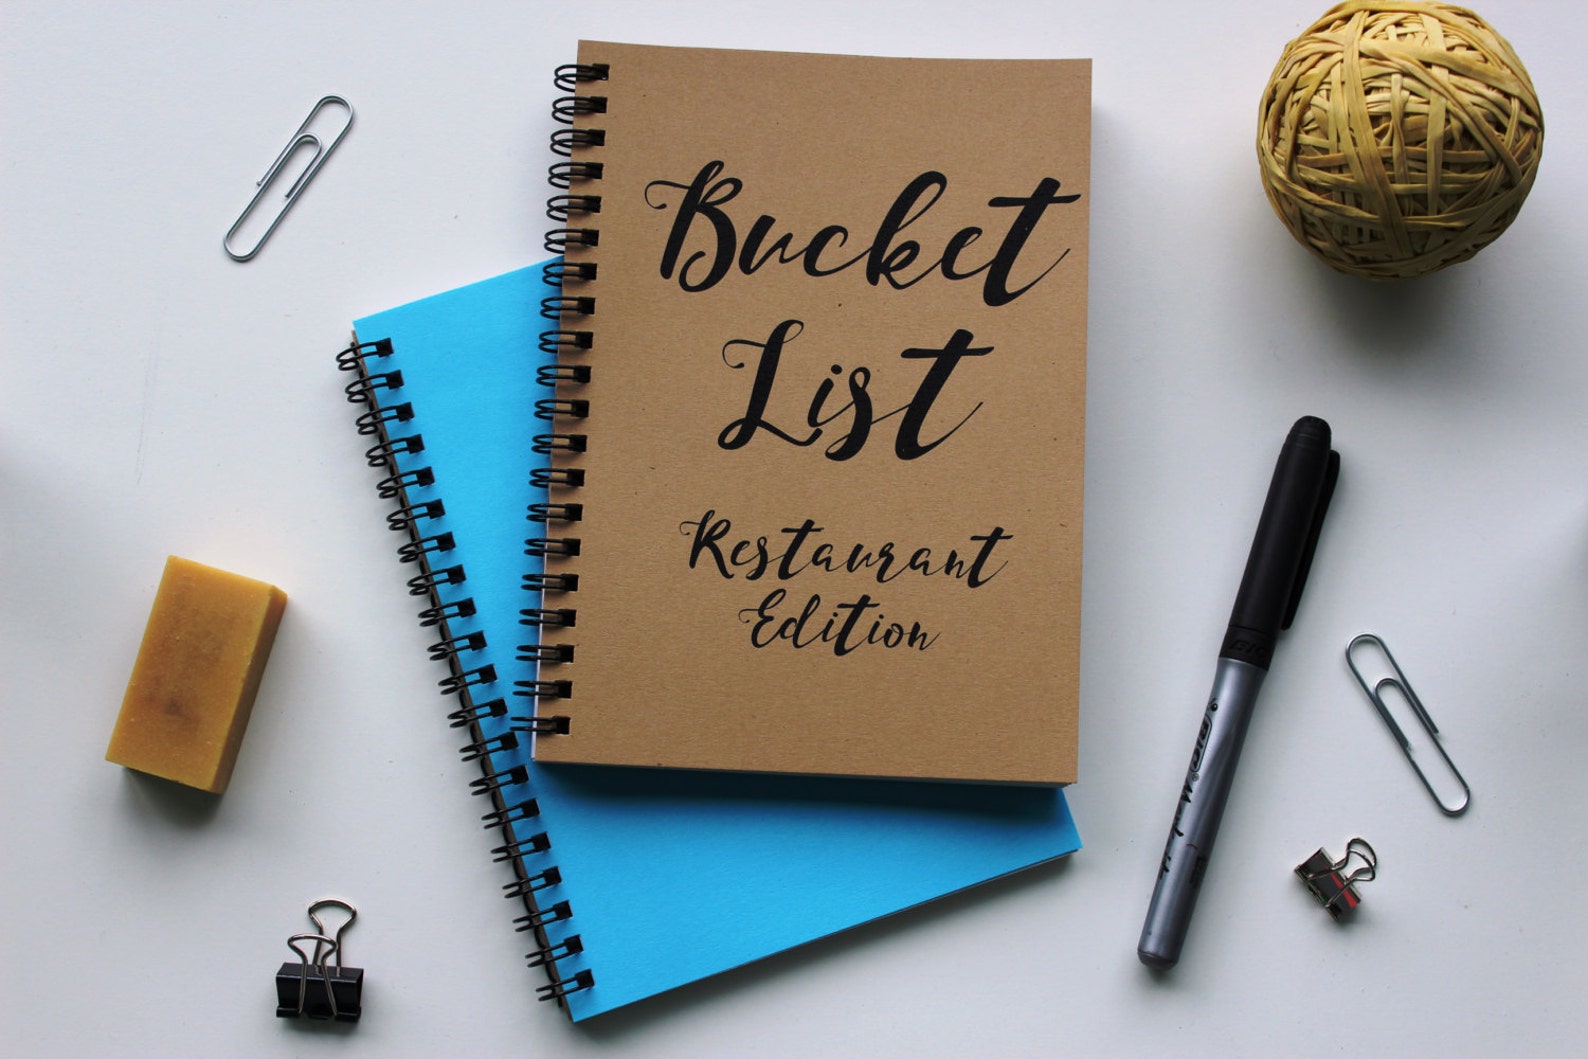 Bucket
List
Restaurant
Edition
BIC
BIC